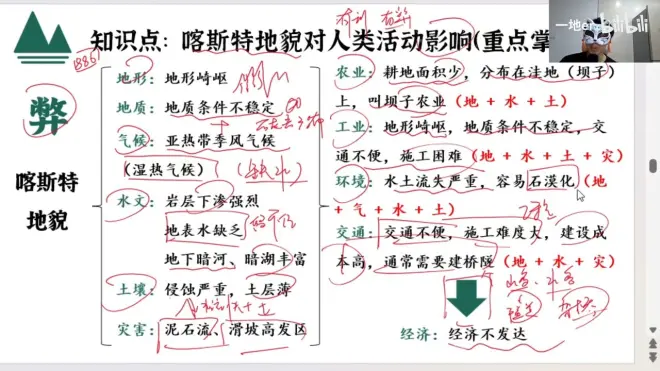 知识点：喀斯特地貌对人类活动影响(重点掌
一地er
bilibili
弊
喀斯特
地貌
地形：地形崎岖
地质：地质条件不稳定
气候：亚热带季风气候
(湿热气候)
(缺水)
水文：岩层下渗强烈
地表水缺乏
地下暗河、暗湖丰富
土壤：侵蚀严重，土层薄
灾害：泥石流、滑坡高发区
农业：耕地面积少，分布在洼地（坝子）
上，叫坝子农业（地 + 水 + 土）
工业：地形崎岖，地质条件不稳定，交
通不便，施工困难（地 + 水 + 土 + 灾）
环境：水土流失严重，容易石漠化（地
+ 气 + 水 + 土）
交通：交通不便，施工难度大，建设成
本高，通常需要建桥隧（地 + 水 + 灾）
经济：经济不发达